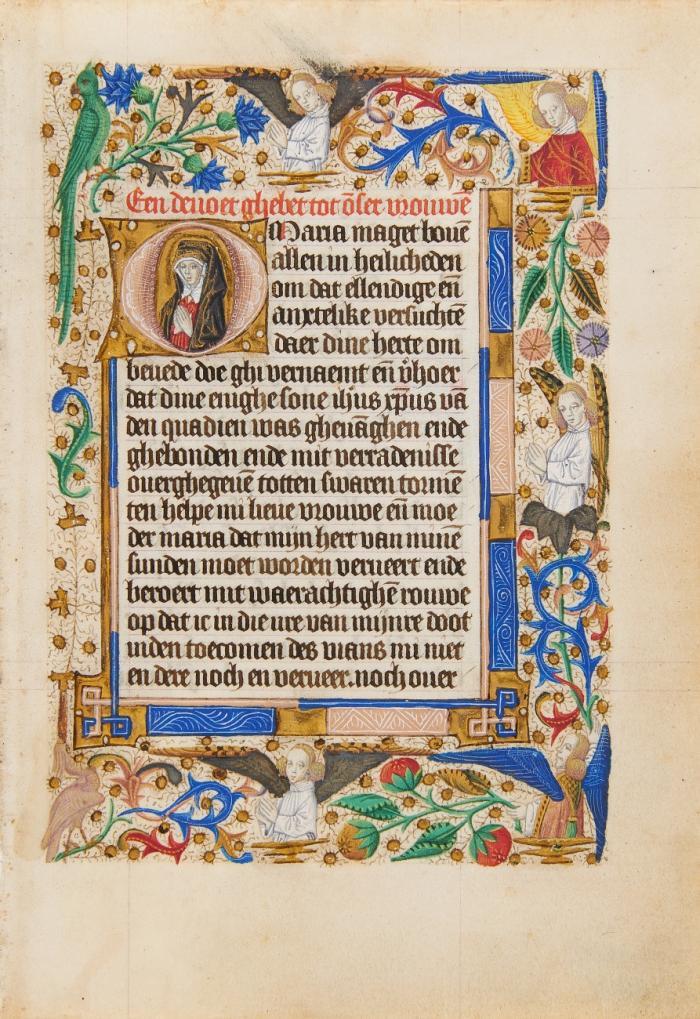 Een deuoet ghebet tot õser vrouwẽ
O Maria maget bouẽ
allen in heilicheden
om dat ellendige eñ
anxtelike versuchtẽ
daer dine herte om
beuede doe ghi vernaemt eñ v̊hoer
dat dine enighe sone ihus xp̃us vã
den quadien was gheuãghen ende
ghebonden ende mit verradenisse
ouerghegeuẽ totten swaren tormẽ
ten helpe mi lieue vrouwe eñ moe
der maria dat mijn hert van minẽ
sunden moet worden verueert ende
beroert mit waerachtighẽ rouwe
op dat ic in die ure van mijnre doot
inden toecomen des vians mi niet
en dere noch en verueer. noch ouer